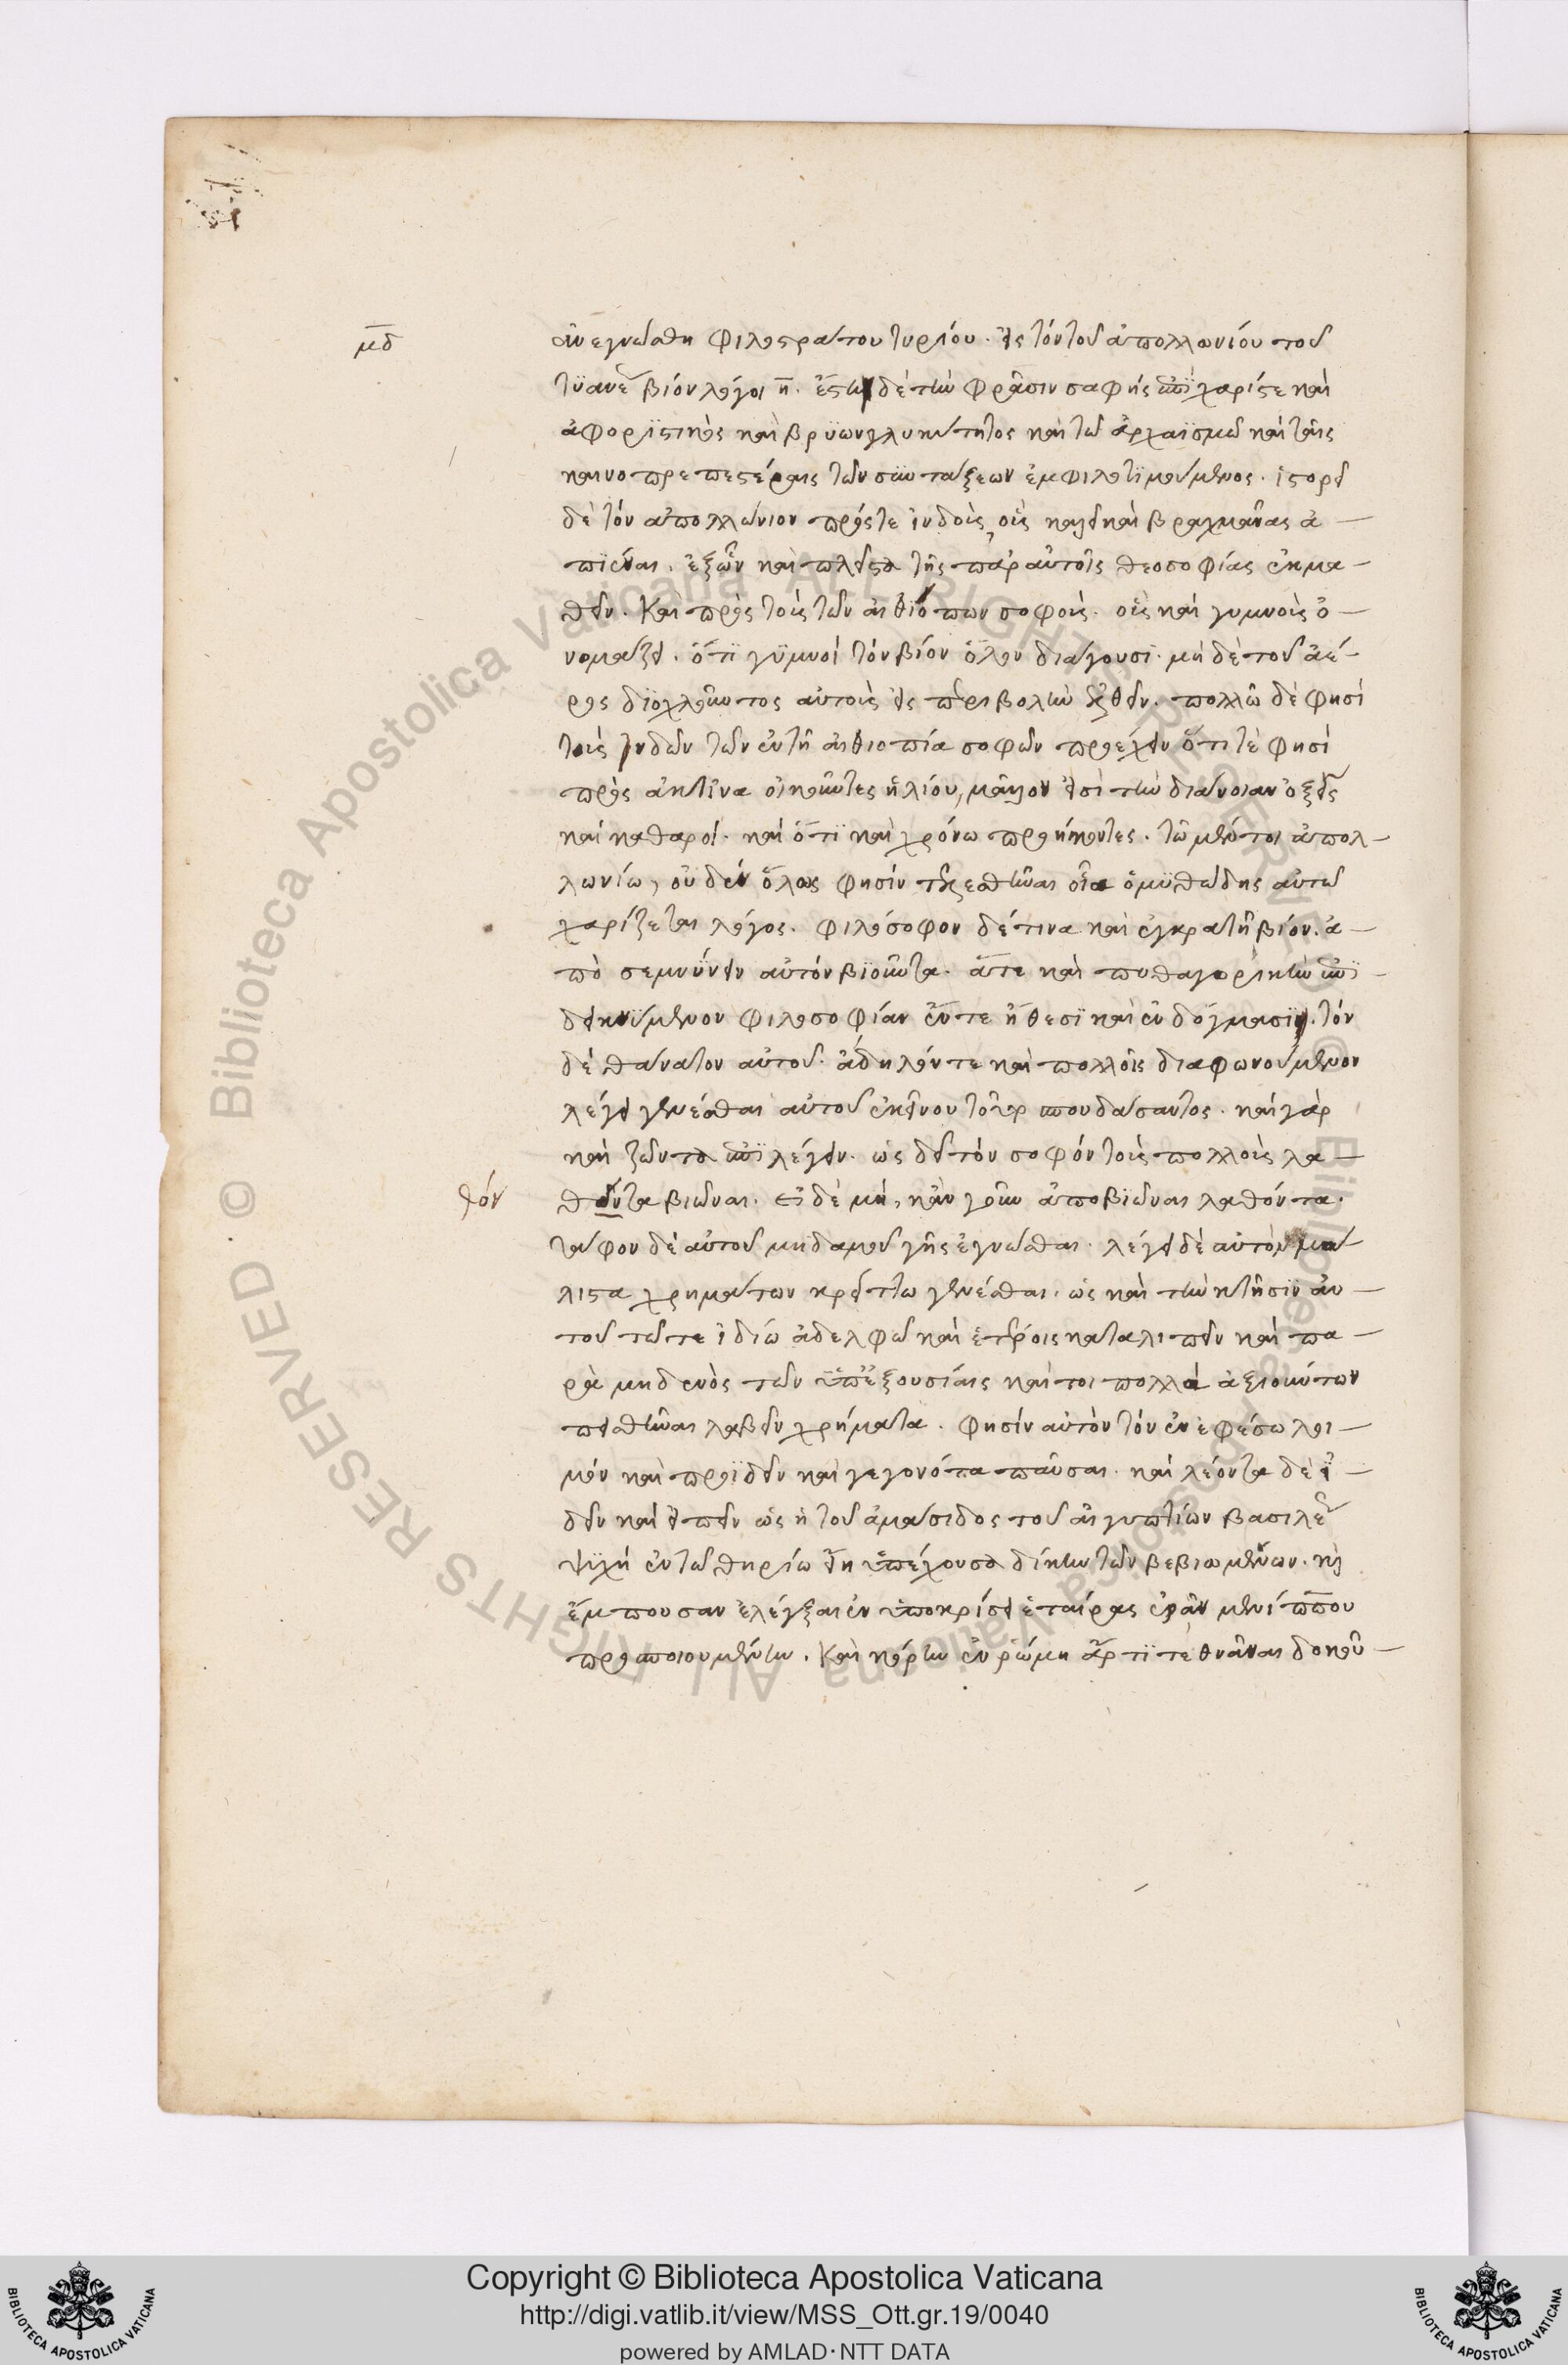 μδ
ἀνεγνώσθη φιλοστράτου τυρίου. εἰς τὸν τοῦ ἀπολλωνίου τοῦ
τυανέως βίον λόγοι η. ἔστι δὲ τὴν φράσιν σαφὴς ἐπίχαρίς τε καὶ
ἀφοριστικὸς καὶ βρύων γλυκύτητος καὶ τῶ ἀρχαϊσμῶ καὶ ταῖς
καινοπρεπεστέραις τῶν συντάξεων ἐμφιλοτιμούμενος. ἱστορεῖ
δὲ τὸν ἀπολλώνιον πρός τε ἰνδοὺς, οὓς καλεῖ καὶ βραχμᾶνας ἀ-
πιέναι. ἐξ ὧν καὶ πλεῖστα τῆς παρ' αὐτοῖς θεοσοφίας ἐκμα-
θεῖν. Καὶ πρὸς τοὺς τῶν αἰθιόπων σοφούς. οὓς καὶ γυμνοὺς ὀ-
νομάζει. ὅτι γυμνοὶ τὸν βίον ὅλον διάγουσι. μὴ δὲ τοῦ ἀέ-
ρος διοχλοῦντος αὐτοὺς εἰς περιβολὴν ἐλθεῖν. πολλῶ δέ φησι
τοὺς ἰνδῶν τῶν ἐν τῆ αἰθιοπία σοφῶν προέχειν ὅτι τέ φησί
πρὸς ἀκτῖνα οἰκοῦντες ἡλίου, μᾶλλον εἰσὶ τὴν διάνοιαν ὀξεῖς
καὶ καθαροί. καὶ ὅτι καὶ χρόνω προήκοντες. τῶ μέντοι ἀπολ-
λωνίω, οὐδὲν ὅλως φησὶν τετελεσθῆναι οἷα ὁ μυθώδης αὐτῶ
χαρίζεται λόγος. φιλόσοφον δέ τινα καὶ ἐγκρατῆ βίον. ἀ-
πὸ σεμνύνειν αὐτὸν βιοῦντα. ἅτε καὶ πυθαγορικὴν ἐπι-
δεικνύμενον φιλοσοφίαν ἔν τε ἤθεσι καὶ ἐν δόγμασιν. τὸν
δὲ θάνατον αὐτοῦ. ἄδηλόν τε καὶ πολλοῖς διαφωνούμενον
λέγει γενέσθαι αὐτοῦ ἐκείνου τοῦτο σπουδάσαντος. καὶ γὰρ
καὶ ζῶντα ἐπιλέγειν. ὡς δεῖ τὸν σοφὸν τοὺς πολλοὺς λα-
θόν
θοῦντα βιῶναι. εἰ δὲ μή, κἂν γοῦν ἀποβιῶναι λαθόντα.
τάφον δὲ αὐτοῦ μηδαμοῦ γῆς ἐγνῶσθαι. λέγει δὲ αὐτὸν μά-
λιστα χρημάτων κρείττω γενέσθαι. ὡς καὶ τὴν κτῆσιν αὐ-
τοῦ τῶ τε ἰδίω ἀδελφῶ καὶ ἑτέροις καταλιπεῖν καὶ πα-
ρὰ μηδενὸς τῶν ὑπ' ἐξουσίαις καί τοι πολλὰ ἀξιούντων
πεισθῆναι λαβεῖν χρήματα. φησὶν αὐτὸν τὸν ἐν ἐφέσω λοι-
μὸν καὶ προϊδεῖν καὶ γεγονότα παῦσαι. καὶ λέοντα δὲ ἰ-
δεῖν καὶ εἰπεῖν ὡς ἡ τοῦ ἀμάσιδος τοῦ αἰγυπτίων βασιλέως
ψυχὴ ἐν τῶ θηρίω εἴη ὑπέχουσα δίκην τῶν βεβιωμένων. καὶ
ἔμπουσαν ἐλέγξαι ἐν ὑποκρίσει ἑταίρας ἐρᾶν μενίππου
προσποιουμένην. Καὶ κόρην ἐν ῥώμη ἄρτι τεθνάναι δοκοῦ-
Copyright © Biblioteca Apostolica Vaticana
http://digi.vatlib.it/view/MSS_Ott.gr.19/0040
powered by AMLAD·NTT DATA